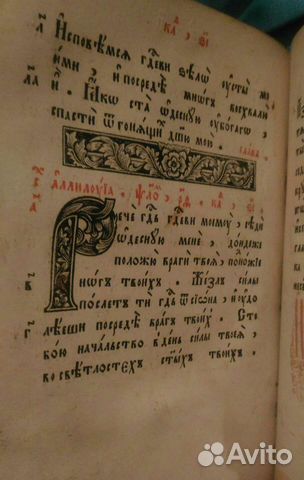 л҃ Исповѣмсѧ гдⷭ҇еви ѕѣлѡ̀ оусты̀ мо
и́ми, и посредѣ̀ мно́гъ восхвалю̀
л҃а е҆го̀. Ꙗ҆́кѡ ста̀ ѡ҆десну́ю оубо́гаго
спастѝ ѿ гонѧ́щиⷯ дш҃ꙋ мою̀.
сла́ва
Аллилꙋ́їа, ѱло́ⷨ, р҃ѳ.
Речѐ гдⷭ҇ь гдⷭ҇еви моемꙋ̀ сѣдѝ
ѡ҆десну́ю менѐ, до́ндеже
положꙋ̀ врагѝ твоѧ̀ поднⷪ҇жїе
в҃ но́гъ твои́хъ. Же́злъ си́лы
по́слетъ ти гдⷭ҇ь ѿ сїѡ́на, и оудо
г҃ лѣ́еши посредѣ̀ вра́гъ твои́хъ. Съ то
бо́ю нача́льство в де́нь си́лы твоеѧ̀
во свѣ́тлостехъ ст҃ы́хъ твои́хъ.
Avito